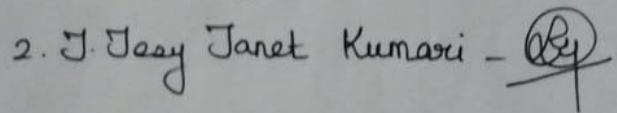 2. J. Jesy Janet Kumari -